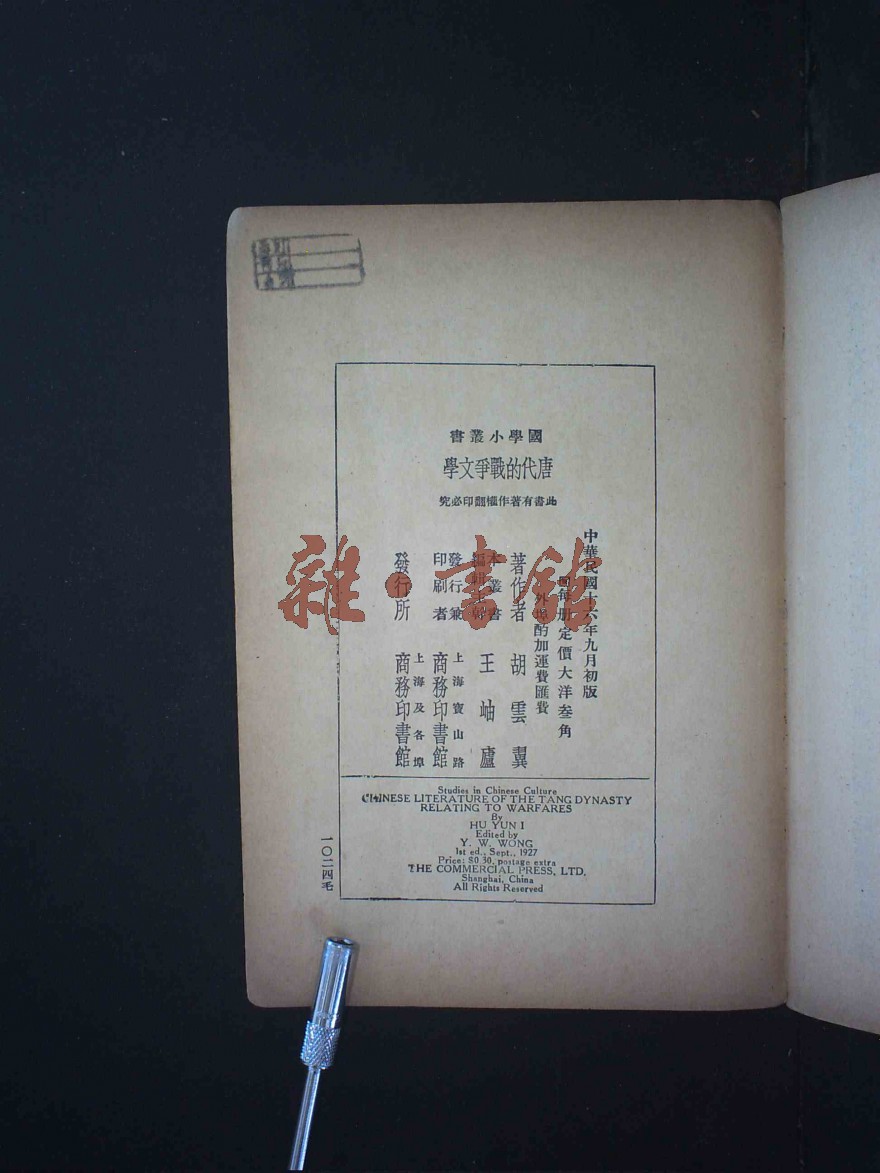 國學小叢書
唐代的戰爭文學
此書有著作權翻印必究
中華民國十六年九月初版
每册定價大洋叁角
外埠酌加運費匯費
著作者 胡雲翼
本叢書編輯主幹 王岫廬
發行兼印刷者 上海寶山路 商務印書館
發行所 上海及各埠 商務印書館
Studies in Chinese Culture
CHINESE LITERATURE OF THE TANG DYNASTY
RELATING TO WARFARES
By
HU YUN I
Edited by
Y. W. WONG
1st ed., Sept., 1927
Price: $0.30, postage extra
THE COMMERCIAL PRESS, LTD.
Shanghai, China
All Rights Reserved
一〇二四毛
雜·書館